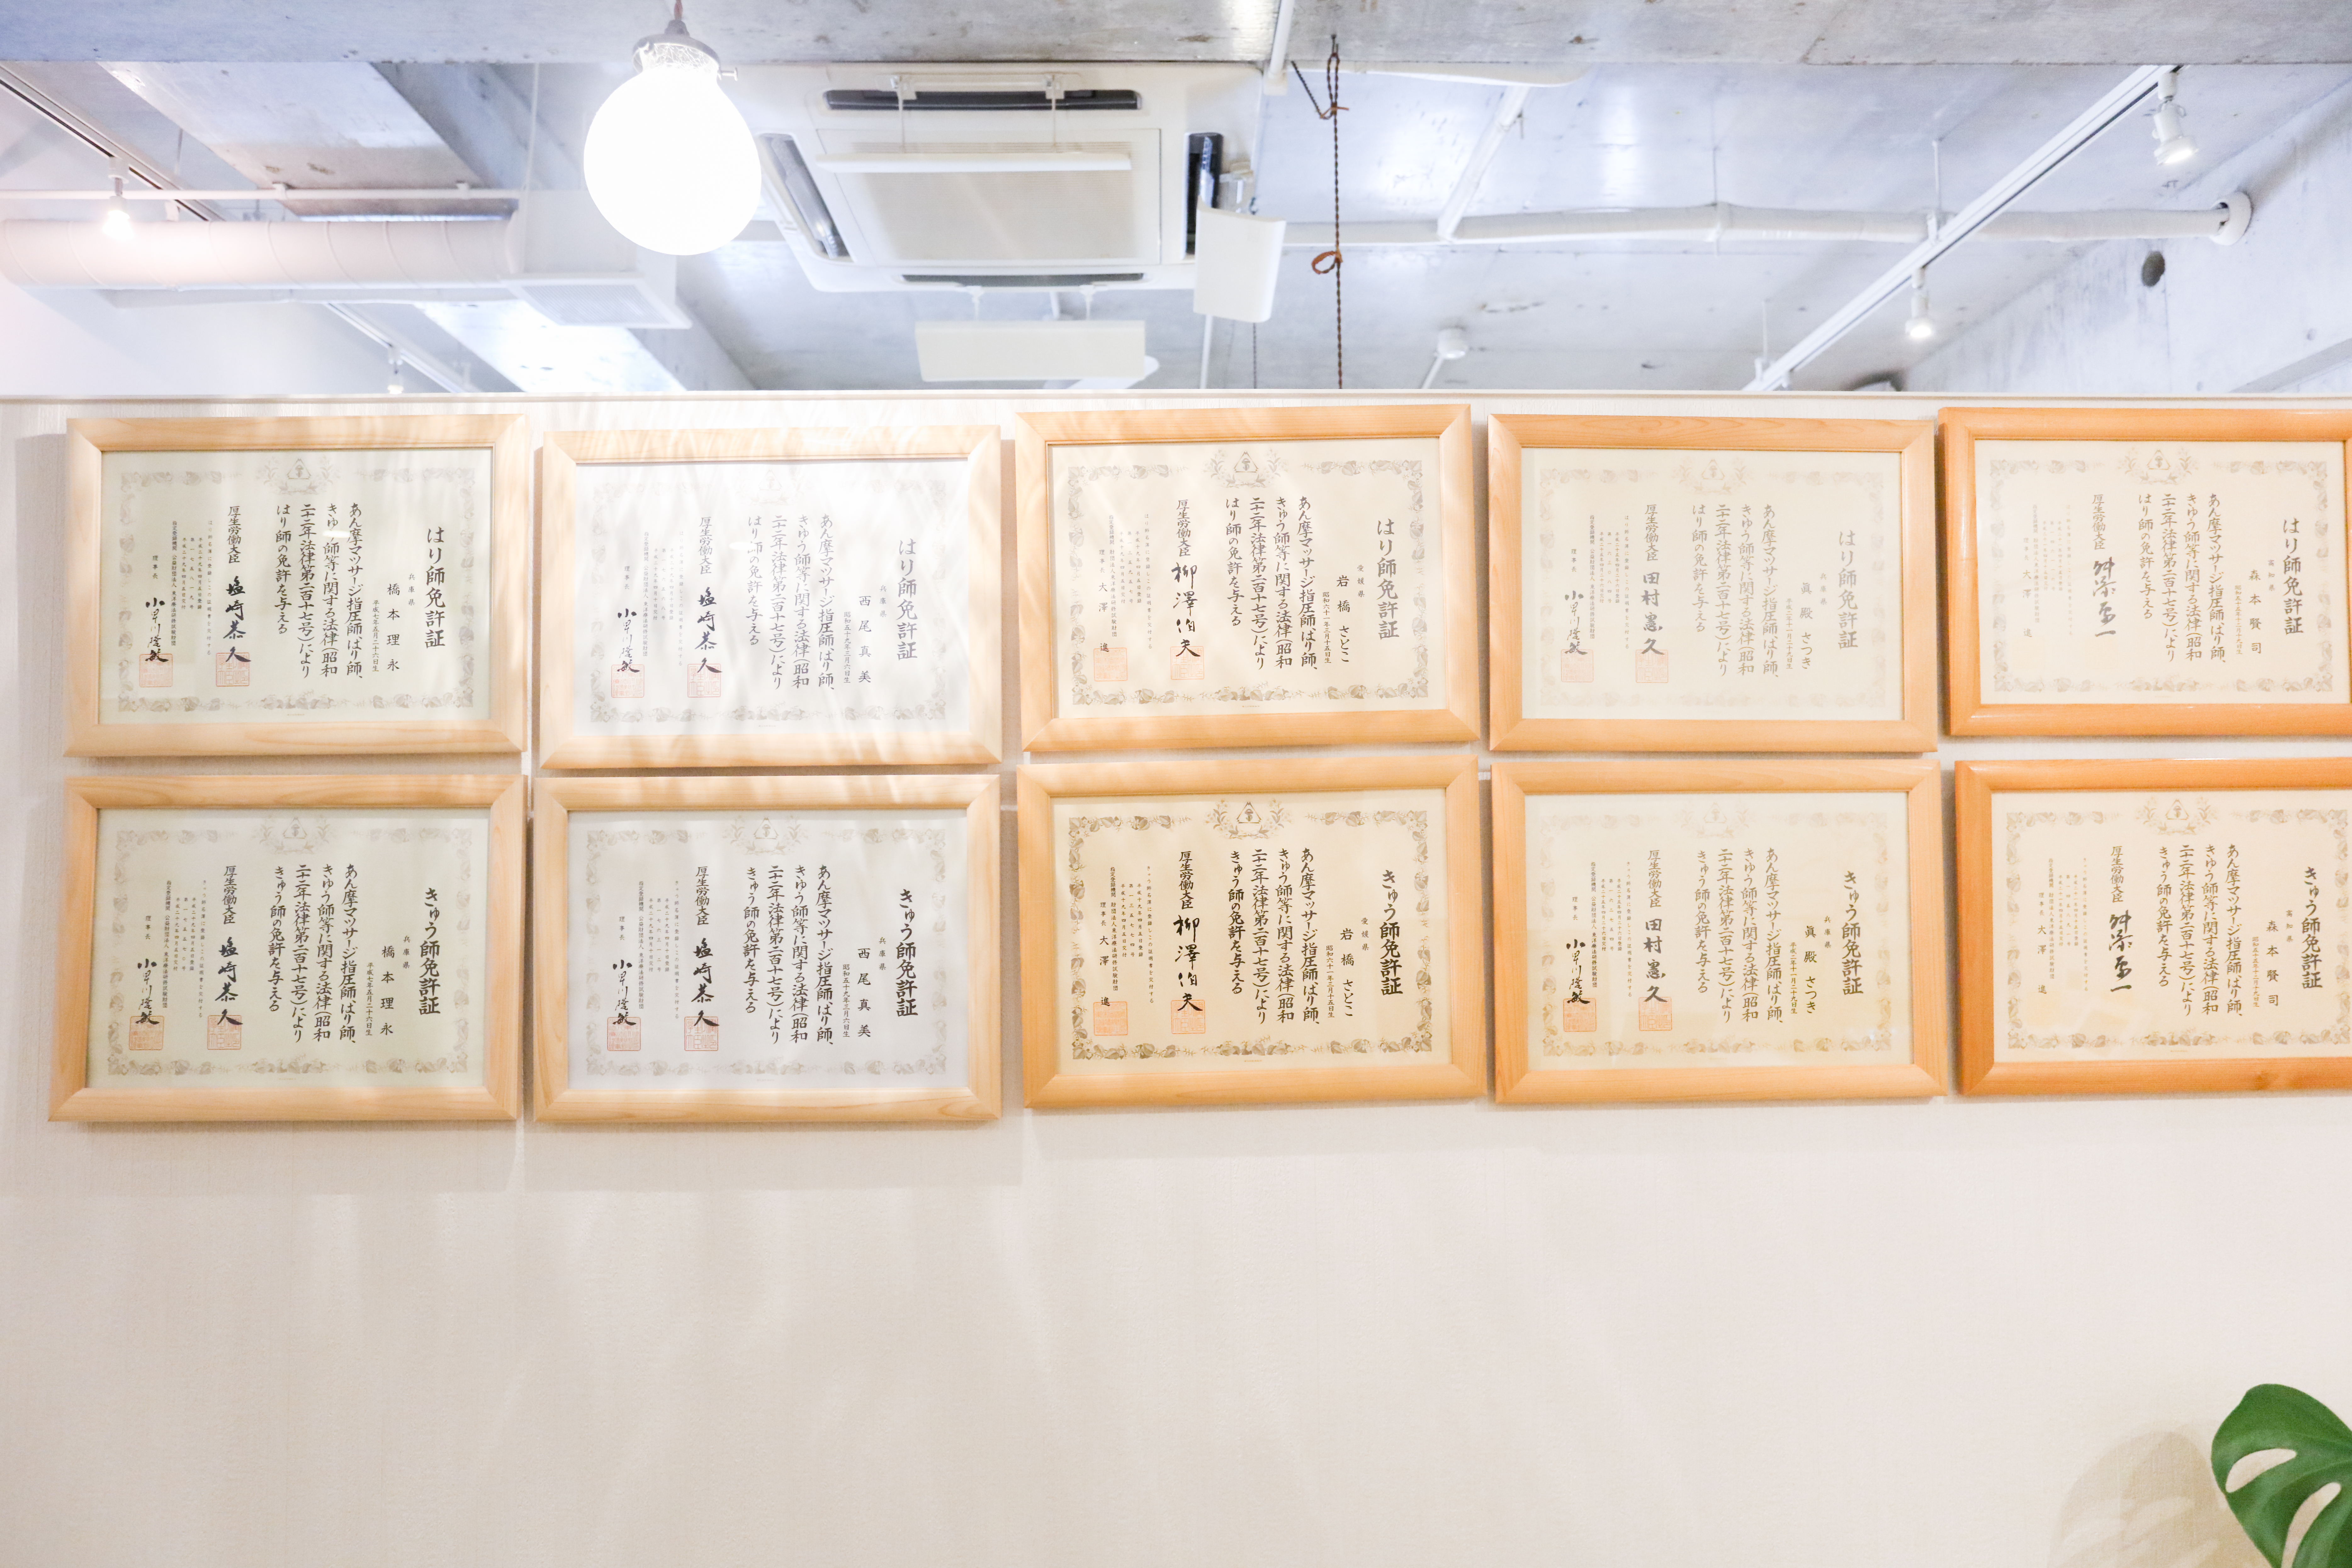 はり師免許証
兵庫県
橋本理永
平成七年五月二十六日生
あん摩マツサージ指圧師、はり師、
きゆう師等に関する法律(昭和
二十二年法律第二百十七号)により
はり師の免許を与える
厚生労働大臣 塩崎恭久
理事長
はり師免許証
兵庫県
西尾真美
昭和五十九年三月六日生
あん摩マツサージ指圧師、はり師、
きゆう師等に関する法律(昭和
二十二年法律第二百十七号)により
はり師の免許を与える
厚生労働大臣 塩崎恭久
理事長
はり師免許証
愛媛県
岩橋さとこ
昭和六十一年三月十五日生
あん摩マツサージ指圧師、はり師、
きゆう師等に関する法律(昭和
二十二年法律第二百十七号)により
はり師の免許を与える
厚生労働大臣 柳澤伯夫
理事長 大澤進
はり師免許証
兵庫県
眞殿さつき
あん摩マツサージ指圧師、はり師、
きゆう師等に関する法律(昭和
二十二年法律第二百十七号)により
はり師の免許を与える
厚生労働大臣 田村憲久
理事長
はり師免許証
高知県
森本賢司
あん摩マツサージ指圧師、はり師、
きゆう師等に関する法律(昭和
二十二年法律第二百十七号)により
はり師の免許を与える
厚生労働大臣 舛添要一
大澤進
きゅう師免許証
兵庫県
橋本理永
平成七年五月二十六日生
あん摩マツサージ指圧師、はり師、
きゆう師等に関する法律(昭和
二十二年法律第二百十七号)により
きゅう師の免許を与える
厚生労働大臣 塩崎恭久
理事長
きゅう師免許証
兵庫県
西尾真美
昭和五十九年三月六日生
あん摩マツサージ指圧師、はり師、
きゆう師等に関する法律(昭和
二十二年法律第二百十七号)により
きゅう師の免許を与える
厚生労働大臣 塩崎恭久
理事長
きゅう師免許証
愛媛県
岩橋さとこ
昭和六十一年三月十五日生
あん摩マツサージ指圧師、はり師、
きゆう師等に関する法律(昭和
二十二年法律第二百十七号)により
きゅう師の免許を与える
厚生労働大臣 柳澤伯夫
理事長 大澤進
きゅう師免許証
兵庫県
眞殿さつき
あん摩マツサージ指圧師、はり師、
きゆう師等に関する法律(昭和
二十二年法律第二百十七号)により
きゅう師の免許を与える
厚生労働大臣 田村憲久
理事長
きゅう師免許証
高知県
森本賢司
あん摩マツサージ指圧師、はり師、
きゆう師等に関する法律(昭和
二十二年法律第二百十七号)により
きゅう師の免許を与える
厚生労働大臣 舛添要一
理事長 大澤進